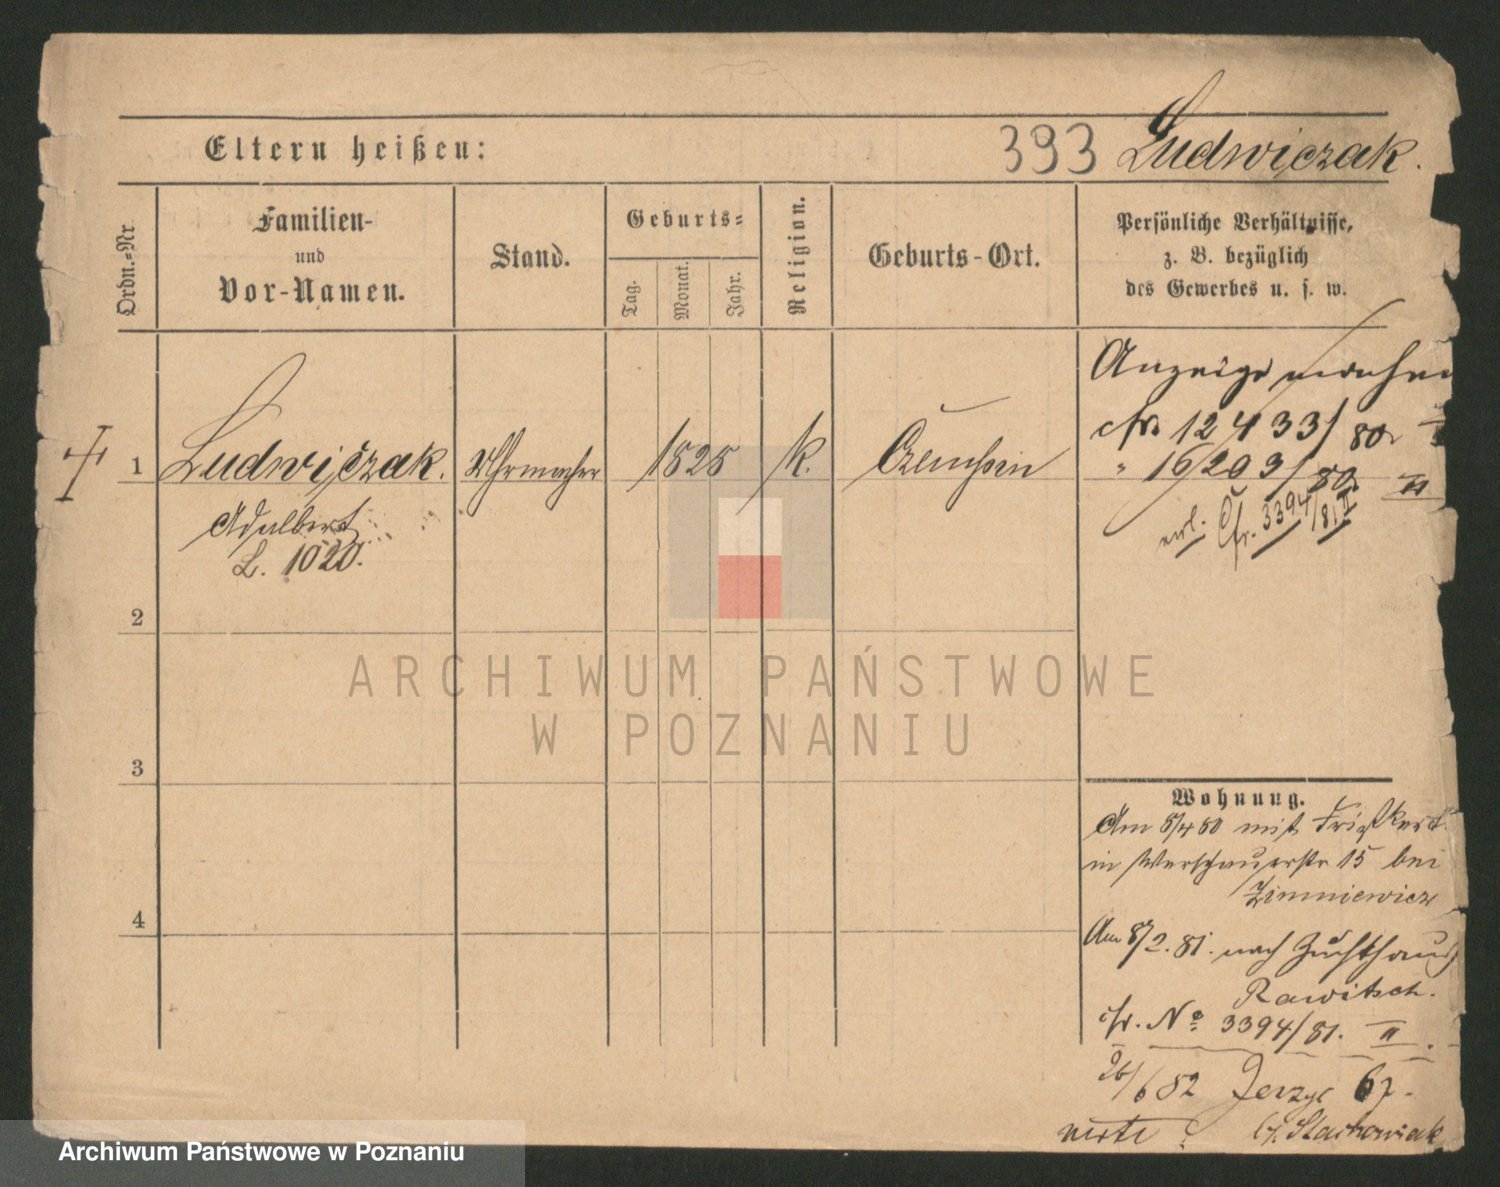 Eltern heißen:
393 Ludwiczak.
Ordn.-Nr.
Familien-
und
Vor-Namen.
Stand.
Geburts-
Tag.
Monat.
Jahr.
Religion.
Geburts-Ort.
Persönliche Verhältnisse,
z. B. bezüglich
des Gewerbes u. s. w.
1
Ludwiczak.
Adalbert
L. 1020.
Uhrmacher
1828
k.
Anzeige machen
cfr. 12433/80
" 16203/80 II
Cfr. 3394/81 II
2
3
4
Wohnung.
Am 8/4 80 mit
in 15 bei
Zimniewicz
Am 8/2. 81. nach Zuchthaus
Rawitsch.
cfr. No 3394/81. II.
26/6 82 Jerzyc 67.
b/. Stachowiak
ARCHIWUM PAŃSTWOWE
W POZNANIU
Archiwum Państwowe w Poznaniu